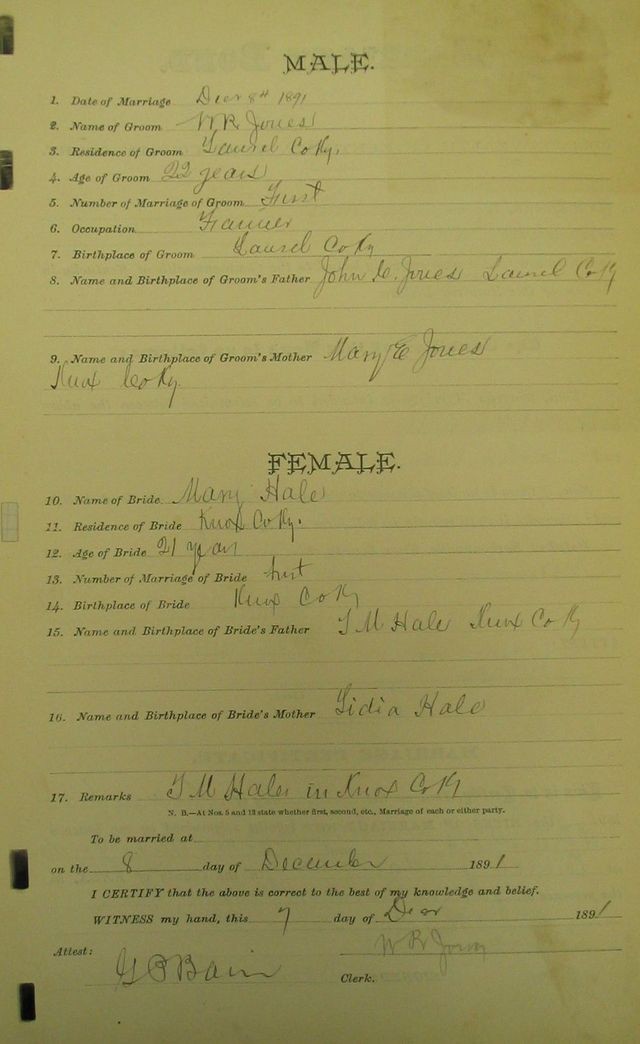 MALE.
1. Date of Marriage Decr 8th 1891
2. Name of Groom W R Jones
3. Residence of Groom Laurel Co Ky.
4. Age of Groom 22 years
5. Number of Marriage of Groom First
6. Occupation Farmer
7. Birthplace of Groom Laurel Co Ky
8. Name and Birthplace of Groom's Father John C. Jones Laurel Co Ky
9. Name and Birthplace of Groom's Mother Mary E Jones
Knox Co Ky.
FEMALE.
10. Name of Bride. Mary Hale
11. Residence of Bride Knox Co Ky.
12. Age of Bride 21 years
13. Number of Marriage of Bride first
14. Birthplace of Bride Knox Co Ky
15. Name and Birthplace of Bride's Father T M Hale Knox Co Ky
16. Name and Birthplace of Bride's Mother Lidia Hale
17. Remarks T M Hales in Knox Co Ky
N. B.—At Nos. 5 and 13 state whether first, second, etc., Marriage of each or either party.
To be married at
on the 8 day of December 1891
I CERTIFY that the above is correct to the best of my knowledge and belief.
WITNESS my hand, this 7 day of Decr 1891
W R Jones
Attest:
Bain
Clerk.